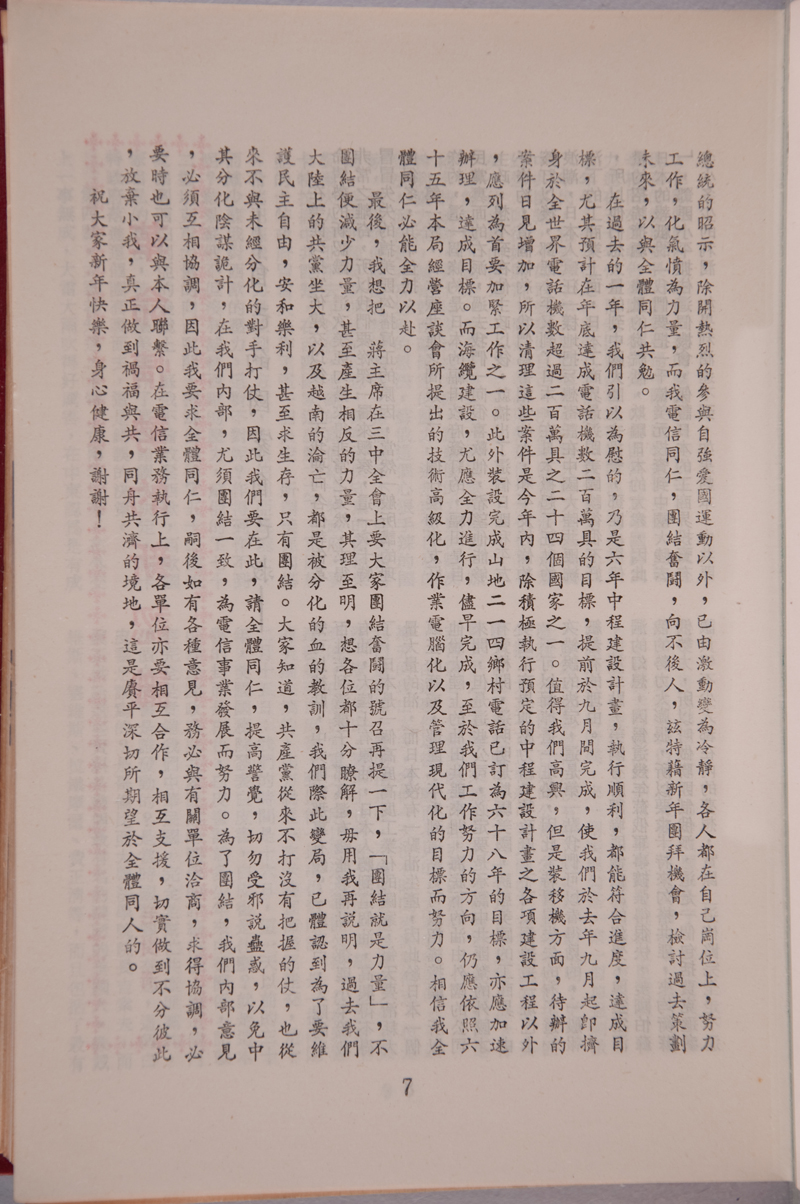 總統的昭示，除開熱烈的參與自強愛國運動以外，已由激動變為冷靜，各人都在自己崗位上，努力
工作，化氣憤為力量，而我電信同仁，團結奮鬪，向不後人，玆特藉新年團拜機會，檢討過去策劃
未來，以與全體同仁共勉。
在過去的一年，我們引以為慰的，乃是六年中程建設計畫，執行順利，都能符合進度，達成目
標，尤其預計在年底達成電話機数二百萬具的目標，提前於九月間完成，使我們於去年九月起卽擠
身於全世界電話機数超過二百萬具之二十四個國家之一。值得我們高興，但是裝移機方面，待辦的
案件日見增加，所以清理這些案件是今年內，除積極執行預定的中程建設計畫之各項建設工程以外
，應列為首要加緊工作之一。此外裝設完成山地二一四鄉村電話已訂為六十八年的目標，亦應加速
辦理，達成目標。而海纜建設，尤應全力進行，儘早完成，至於我們工作努力的方向，仍應依照六
十五年本局經營座談會所提出的技術高級化，作業電腦化以及管理現代化的目標而努力。相信我全
體同仁必能全力以赴。
最後，我想把　蔣主席在三中全會上要大家團結奮鬪的號召再提一下，「團結就是力量」，不
團結便減少力量，甚至產生相反的力量，其理至明，想各位都十分瞭解，毋用我再說明，過去我們
大陸上的共黨坐大，以及越南的淪亡，都是被分化的血的教訓，我們際此變局，已體認到為了要維
護民主自由，安和樂利，甚至求生存，只有團結。大家知道，共產黨從來不打沒有把握的仗，也從
來不與未經分化的對手打仗，因此我們要在此，請全體同仁，提高警覺，切勿受邪説蠱惑，以免中
其分化陰謀詭計，在我們內部，尤須團結一致，為電信事業發展而努力。為了團結，我們內部意見
，必須互相協調，因此我要求全體同仁，嗣後如有各種意見，務必與有關單位洽商，求得協調，必
要時也可以與本人聯繫。在電信業務執行上，各單位亦要相互合作，相互支援，切實做到不分彼此
，放棄小我，真正做到禍福與共，同舟共濟的境地，這是賡平深切所期望於全體同人的。
祝大家新年快樂，身心健康，謝謝！
7